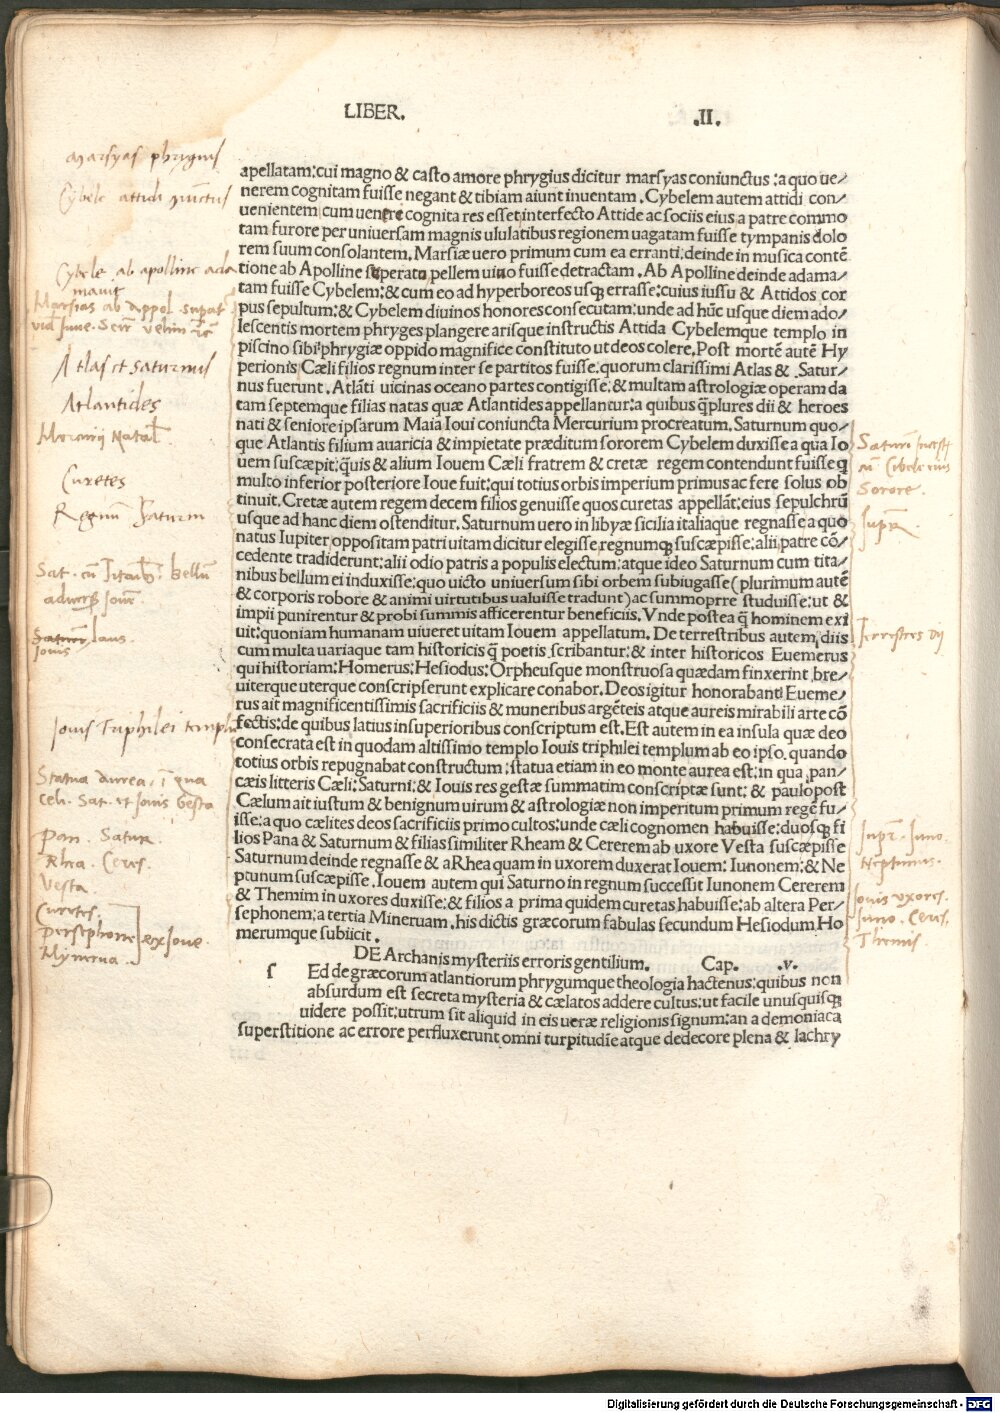 LIBER. .II.
apellatam:cui magno & casto amore phrygius dicitur marsyas coniunctus :a quo ue/
nerem cognitam fuisse negant & tibiam aiunt inuentam . Cybelem autem attidi con/
uenientem cum uentre cognita res esset interfecto Attide ac sociis eius a patre commo
tam furore per uniuersam magnis ululatibus regionem uagatam fuisse tympanis dolo
rem suum consolantem. Marsiæ uero primum cum ea erranti: deinde in musica contē
tione ab Apolline superato pellem uiuo fuisse detractam . Ab Apolline deinde adama/
tam fuisse Cybelem: & cum eo ad hyperboreos usq; errasse: cuius iussu & Attidos cor
pus sepultum: & Cybelem diuinos honores consecutam: unde ad hūc usque diem ado/
lescentis mortem phryges plangere arisque instructis Attida Cybelemque templo in
piscino sibi phrygiæ oppido magnifice constituto ut deos colere. Post mortē autē Hy
perionis Cæli filios regnum inter se partitos fuisse: quorum clarissimi Atlas & Satur
nus fuerunt. Atlāti uicinas oceano partes contigisse: & multam astrologiæ operam da
tam septemque filias natas quæ Atlantides appellantur: a quibus q̄plures dii & heroes
nati & seniore ipsarum Maia Ioui coniuncta Mercurium procreatum. Saturnum quo/
que Atlantis filium auaricia & impietate præditum sororem Cybelem duxisse a qua Io
uem suscæpit: q̄uis & alium Iouem Cæli fratrem & cretæ regem contendunt fuisse q̄
multo inferior posteriore Ioue fuit: qui totius orbis imperium primus ac fere solus ob
tinuit. Cretæ autem regem decem filios genuisse quos curetas appellāt: eius sepulchrū
usque ad hanc diem ostenditur. Saturnum uero in libyæ sicilia italiaque regnasse a quo
natus Iupiter oppositam patri uitam dicitur elegisse regnumq; suscæpisse: alii patre cō/
cedente tradiderunt: alii odio patris a populis electum: atque ideo Saturnum cum tita/
nibus bellum ei induxisse: quo uicto uniuersum sibi orbem subiugasse (plurimum autē
& corporis robore & animi uirtutibus ualuisse tradunt) ac summoprre studuisse: ut &
impii punirentur & probi summis afficerentur beneficiis. Vnde postea q̄ hominem exi
uit: quoniam humanam uiueret uitam Iouem appellatum. De terrestribus autem diis
cum multa uariaque tam historicis q̄ poetis scribantur: & inter historicos Euemerus
qui historiam: Homerus: Hesiodus: Orpheusque monstruosa quædam finxerint bre/
uiterque uterque conscripserunt explicare conabor. Deos igitur honorabant Eueme/
rus ait magnificentissimis sacrificiis & muneribus argēteis atque aureis mirabili arte cō
fectis: de quibus latius in superioribus conscriptum est. Est autem in ea insula quæ deo
consecrata est in quodam altissimo templo Iouis triphilei templum ab eo ipso quando
totius orbis repugnabat constructum: statua etiam in eo monte aurea est: in qua pan/
cæis litteris Cæli: Saturni: & Iouis res gestæ summatim conscriptæ sunt: & paulopost
Cælum ait iustum & benignum uirum & astrologiæ non imperitum primum regē fu/
isse: a quo cælites deos sacrificiis primo cultos: unde cæli cognomen habuisse: duosq; fi
lios Pana & Saturnum & filias similiter Rheam & Cererem ab uxore Vesta suscæpisse
Saturnum deinde regnasse & a Rhea quam in uxorem duxerat Iouem: Iunonem: & Ne
ptunum suscæpisse. Iouem autem qui Saturno in regnum successit Iunonem Cererem
& Themim in uxores duxisse: & filios a prima quidem curetas habuisse: ab altera Per/
sephonem: a tertia Mineruam . his dictis græcorum fabulas secundum Hesiodum Ho
merumque subiicit .
DE Archanis mysteriis erroris gentilium. Cap. .v.
f Ed de græcorum atlantiorum phrygumque theologia hactenus: quibus non
absurdum est secreta mysteria & cælatos addere cultus: ut facile unusquisq;
uidere possit: utrum sit aliquid in eis ueræ religionis signum: an a demoniaca
superstitione ac errore perfluxerunt omni turpitudīe atque dedecore plena & lachry
Marsyas phrygius
Cybele attidi
Cybele ab apolline ada
mauit
Marsias ab appol.
Atlas et Saturnus
Atlantides
Mercurij Natal.
Curetes
Regnū Saturni
Sat. cū Titanib. bellū
adversus Jovē.
laus.
Jovis
Jovis Triphilei templū
Statua aurea, ī qua
Celi. Sat. et Jovis gesta
Pan. Satur.
Rhea. Ceres.
Vesta.
Curetes.
Persephone ex Jove.
Mynerva.
cū Cibele eius
Sorore.
Terrestres dij
Jupr. Juno.
Neptunus.
Jovis uxores.
Juno. Ceres.
Themis.
Digitalisierung gefördert durch die Deutsche Forschungsgemeinschaft - DFG